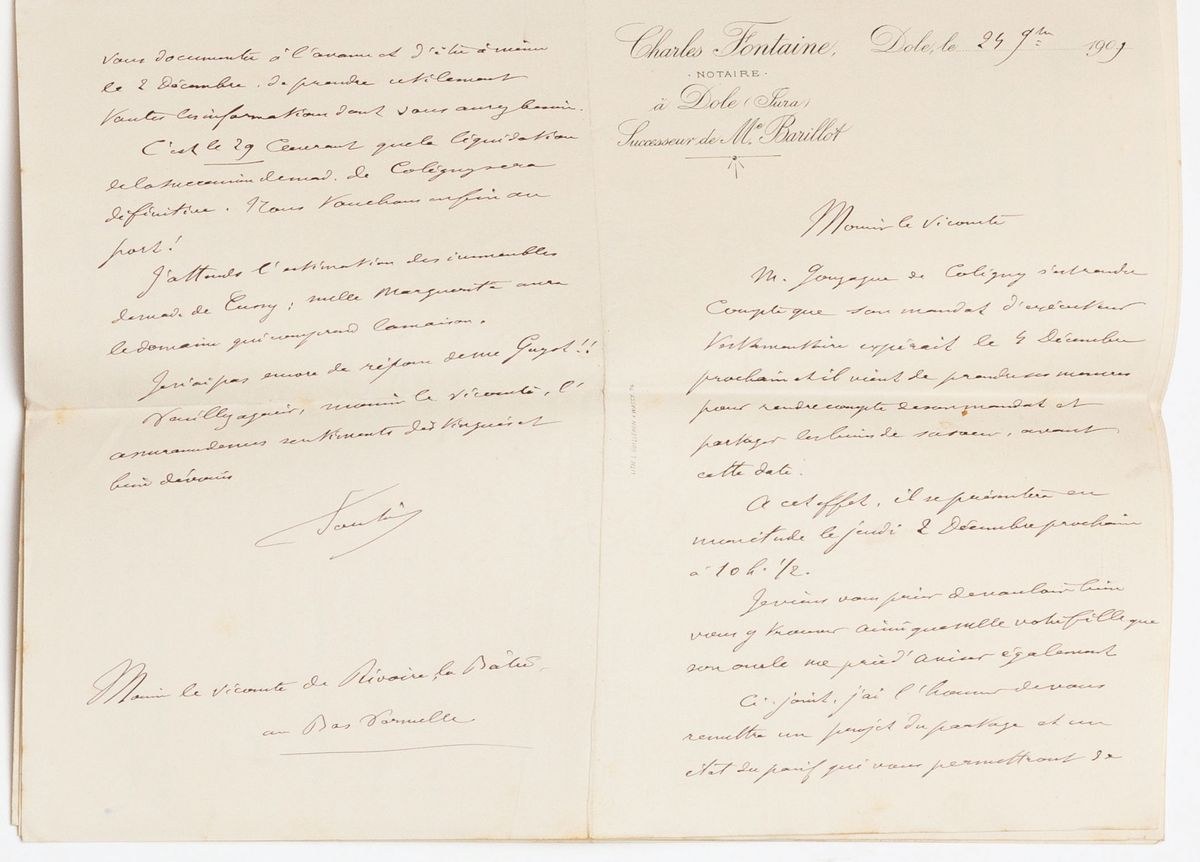 Charles Fontaine,
NOTAIRE
à Dole (Jura)
Successeur de Me. Barillot
Dole, le 24 9bre 1909
Monsieur le Vicomte
M. Gonzague de Coligny s'est rendu
Compte que son mandat d'exécuteur
Testamentaire expirait le 4 Décembre
prochain et il vient de prendre ses mesures
pour rendre compte de son mandat et
partager les biens de sa soeur, avant
cette date.
A cet effet, il se présentera en
mon étude le jeudi 2 Décembre prochain
à 10 h. 1/2.
Je viens vous prier de vouloir bien
vous y trouver ainsi que Melle votre fille que
son oncle me prie d'aviser également
Ci-joint, j'ai l'honneur de vous
remettre un projet du partage et un
état du passif qui vous permettront de
vous documenter à l'avance et d'être à même
le 2 Décembre, de prendre utilement
toutes les informations dont vous aurez besoin.
C'est le 29 Courant que la liquidation
de la succession de mad. de Coligny sera
définitive. Nous touchons enfin au
port!
J'attends l'estimation des immeubles
de mad. de Cussy; melle Marguerite aura
le domaine qui comprend la maison.
Je n'ai pas encore de réponse de Me Guyot!!
Veuillez agréer, monsieur le vicomte, l'
assurance de mes sentiments très distingués et
bien dévoués
Fontaine
Monsieur le vicomte de Rivoire la Bâtie
au Bas Vernelle